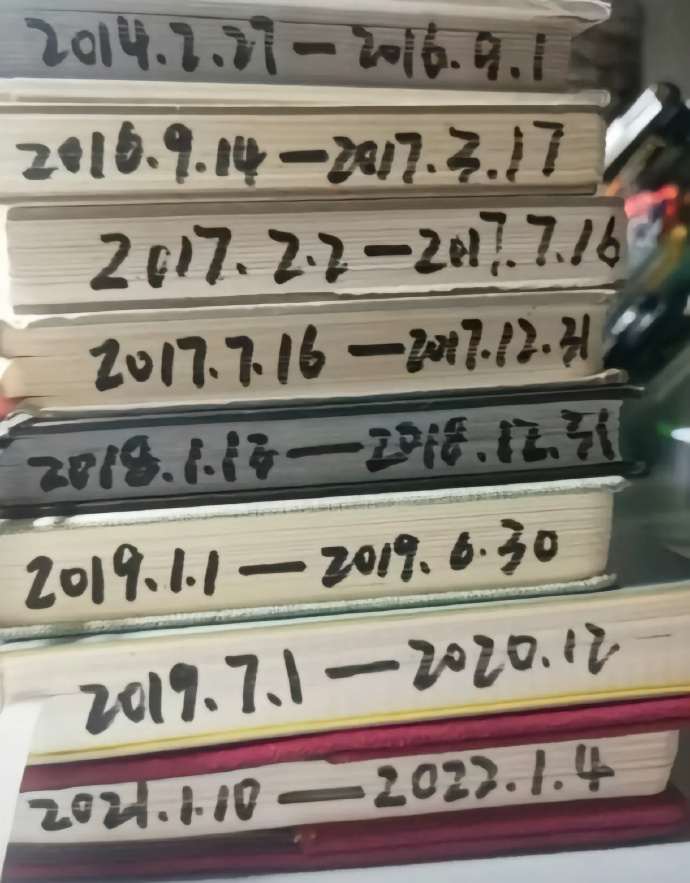 2014.2.27—2016.9.1
2016.9.14—2017.3.17
2017.2.2—2017.7.16
2017.7.16—2017.12.31
2018.1.12—2018.12.31
2019.1.1—2019.6.30
2019.7.1—2020.12
2021.1.10—2022.1.4